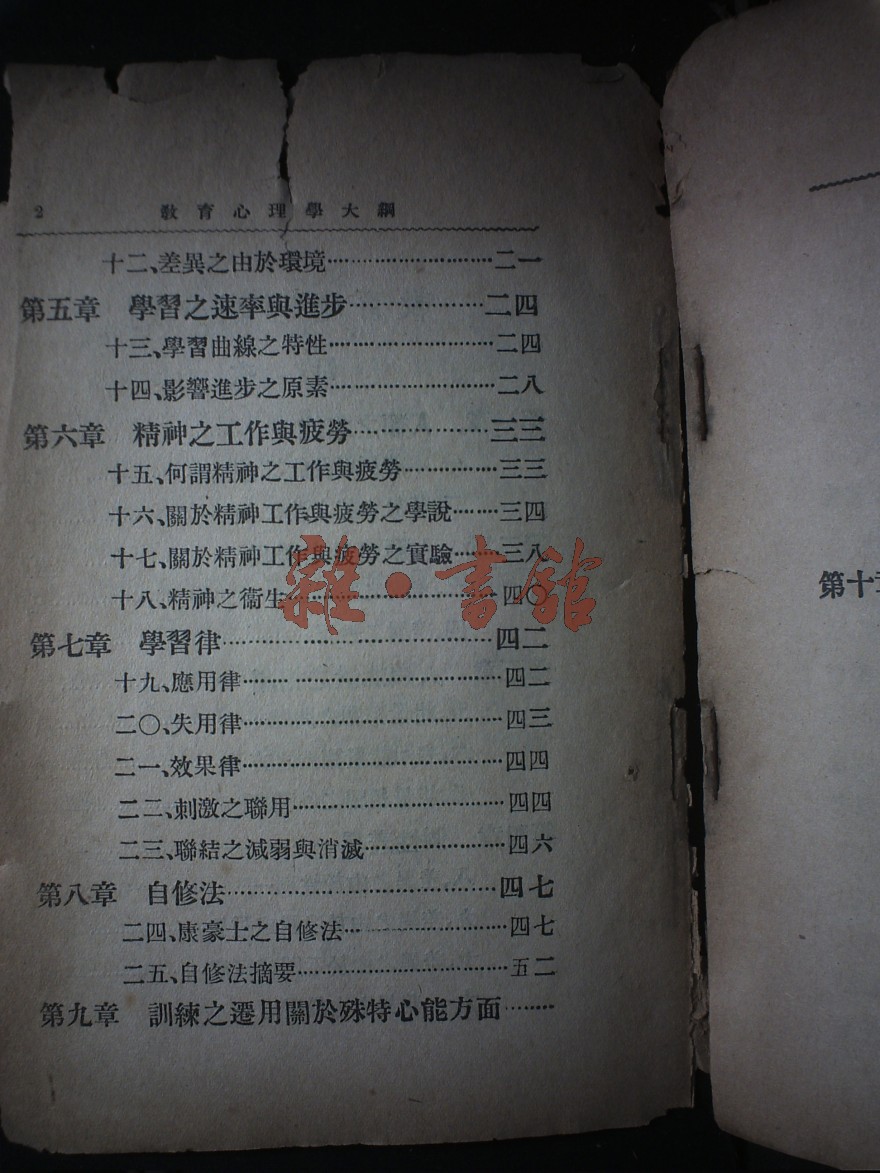 2 教育心理學大綱
十二、差異之由於環境……………………二一
第五章 學習之速率與進步………………二四
十三、學習曲線之特性……………………二四
十四、影響進步之原素……………………二八
第六章 精神之工作與疲勞………………三三
十五、何謂精神之工作與疲勞……………三三
十六、關於精神工作與疲勞之學說……三四
十七、關於精神工作與疲勞之實驗……三八
十八、精神之衞生…………………………四〇
第七章 學習律……………………………四二
十九、應用律………………………………四二
二〇、失用律………………………………四三
二一、效果律………………………………四四
二二、刺激之聯用…………………………四四
二三、聯結之減弱與消滅…………………四六
第八章 自修法……………………………四七
二四、康豪士之自修法……………………四七
二五、自修法摘要…………………………五二
第九章 訓練之遷用關於殊特心能方面………
第十章
雜·書館